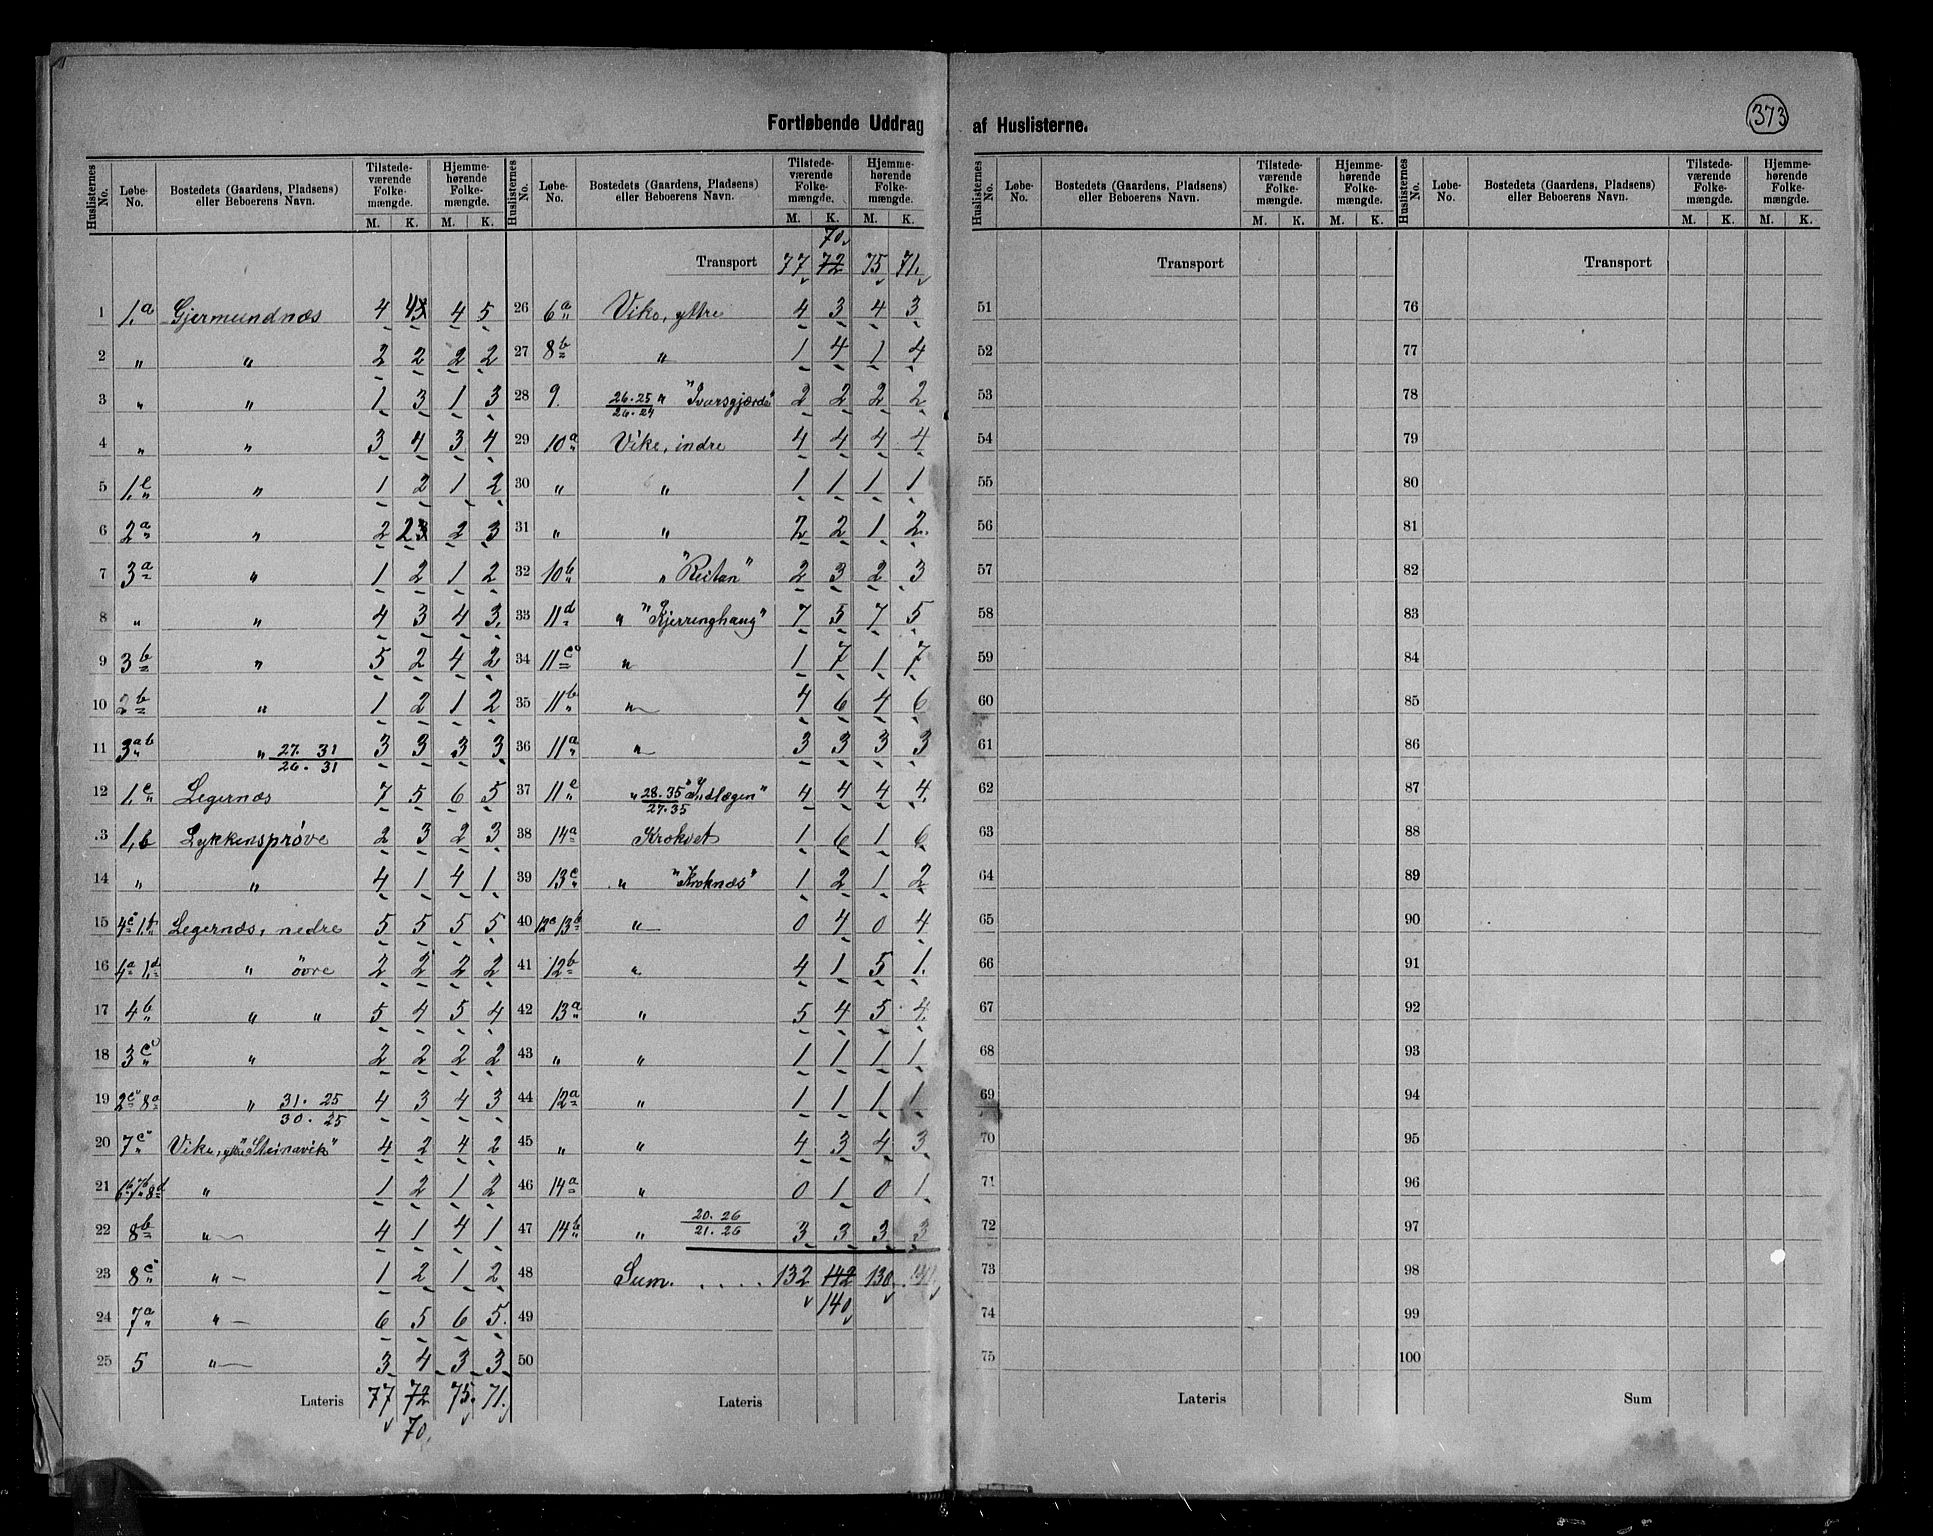 373
Fortløbende Uddrag af Huslisterne.
Huslisternes No. Løbe-No. Bostedets (Gaardens, Pladsens) eller Beboerens Navn. Tilstedeværende Folkemængde. M. K. Hjemmehørende Folkemængde. M. K.
1 1,a Gjermundnæs 4 4 4 5
2 „ „ 2 2 2 2
3 „ „ 1 3 1 3
4 „ „ 3 4 3 4
5 1,e „ 1 2 1 2
6 2a „ 2 2 2 3
7 3a „ 1 2 1 2
8 „ „ 4 3 4 3.
9 3b „ 5 2 4 2
10 2b „ 1 2 1 2
11 3ab „ 27. 31 / 26. 31 3 3 3 3
12 1,c Legernæs 7 5 6 5
13 1,b Lykkensprøve 2 3 2 3
14 „ „ 4 1 4 1
15 4c 1,f Legernæs, nedre 5 5 5 5
16 4a 1,d „ övre 2 2 2 2
17 4b „ „ 5 4 5 4
18 3c „ 2 2 2 2
19 2c 8a „ 31. 25 / 30. 25 4 3 4 3
20 7c Vike, ytre "Steinavik" 4 2 4 2
21 6b 7b 8d „ 1 2 1 2
22 8b „ 4 1 4 1
23 8c „ 1 2 1 2
24 7a „ 6 5 6 5.
25 5 „ 3 4 3 3
Lateris 77 72 75. 71.
70.
Huslisternes No. Løbe-No. Bostedets (Gaardens, Pladsens) eller Beboerens Navn. Tilstedeværende Folkemængde. M. K. Hjemmehørende Folkemængde. M. K.
70.
Transport 77 72 75 71.
26 6a Vike, yttre 4 3 4 3
27 8b „ 1 4 1 4
28 9. 26. 25 / 26. 24 „ "Ivarsgjærde" 2 2 2 2
29 10a Vike, indre 4 4 4 4
30 „ „ 1 1 1 1
31 „ „ 2 2 1 2.
32 10b „ "Reitan" 2 3 2 3
33 11d „ "Kjerringhaug" 7 5 7 5
34 11c „ 1 7 1 7
35 11b „ 4 6 4 6
36 11a „ 3 3 3 3
37 11e „ 28. 35 / 27. 35 "Indlægen" 4 4 4 4.
38 14a Krokset 1 6 1 6
39 13c „ "Kroknæs" 1 2 1 2
40 12c 13b „ 0 4 0 4
41 12b „ 4 1 5 1.
42 13a „ 5 4 5 4.
43 „ „ 1 1 1 1
44 12a „ 1 1 1 1
45 „ „ 4 3 4 3
46 14a „ 0 1 0 1
47 14b „ 20. 26 / 21. 26 3 3 3 3
48 Sum. . . . . 132 142 130
140
49
50
Lateris
Huslisternes No. Løbe-No. Bostedets (Gaardens, Pladsens) eller Beboerens Navn. Tilstedeværende Folkemængde. M. K. Hjemmehørende Folkemængde. M. K.
Transport
51
52
53
54
55
56
57
58
59
60
61
62
63
64
65
66
67
68
69
70
71
72
73
74
75
Lateris
Huslisternes No. Løbe-No. Bostedets (Gaardens, Pladsens) eller Beboerens Navn. Tilstedeværende Folkemængde. M. K. Hjemmehørende Folkemængde. M. K.
Transport
76
77
78
79
80
81
82
83
84
85
86
87
88
89
90
91
92
93
94
95
96
97
98
99
100
Sum